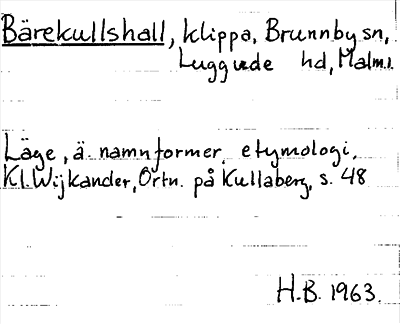 Bärekullshall, klippa, Brunnby sn,
Luggude hd, Malm.
Läge, ä. namnformer, etymologi.
Kl. Wijkander, Ortn. på Kullaberg, s. 48
H.B. 1963.